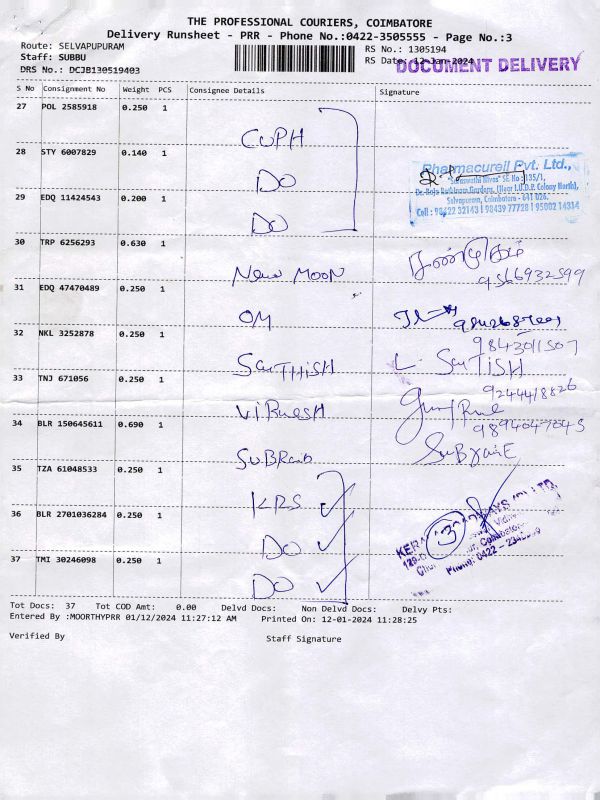 THE PROFESSIONAL COURIERS, COIMBATORE
Delivery Runsheet - PRR - Phone No.:0422-3505555 - Page No.:3
Route: SELVAPUPURAM
RS No.: 1305194
Staff: SUBBU
RS Date: 12-Jan-2024
DOCUMENT DELIVERY
DRS No.: DCJB130519403
S No Consignment No Weight PCS Consignee Details Signature
27 POL 2585918 0.250 1
CUPH
28 STY 6007829 0.140 1
DO
Pharmacurell Pvt. Ltd.,
Selvapuram, Coimbatore - 641 026.
Cell : 98422 32143 | 98439 77728 | 95002 14314
29 EDQ 11424543 0.200 1
DO
30 TRP 6256293 0.630 1
New MOON
9566932599
31 EDQ 47470489 0.250 1
OM
32 NKL 3252878 0.250 1
SaTHISH
9843011507
L. SaTISH
33 TNJ 671056 0.250 1
ViRuESH
9244418826
34 BLR 150645611 0.690 1
SUBRaid
9894047045
35 TZA 61048533 0.250 1
KRS
36 BLR 2701036284 0.250 1
DO
3
37 TMI 30246098 0.250 1
DO
Tot Docs: 37 Tot COD Amt: 0.00 Delvd Docs: Non Delvd Docs: Delvy Pts:
Entered By :MOORTHYPRR 01/12/2024 11:27:12 AM Printed On: 12-01-2024 11:28:25
Verified By Staff Signature